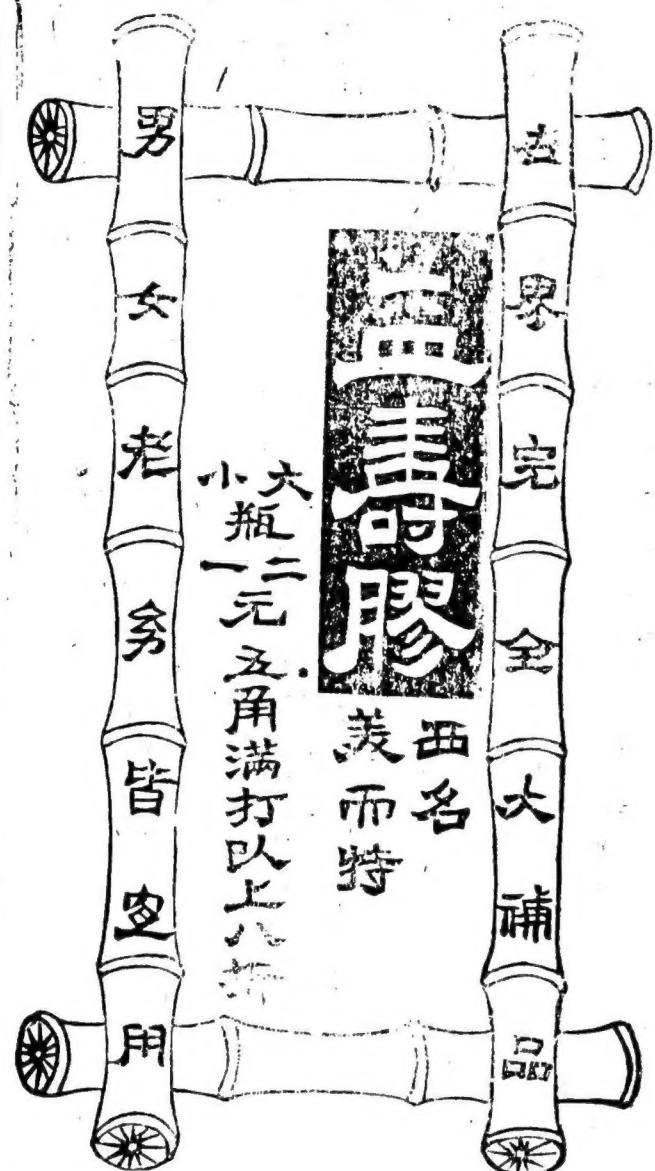 世界完全大補品
益壽膠
西名
美而特
大小瓶二一元五角滿打以上八折
男女老幼皆宜用